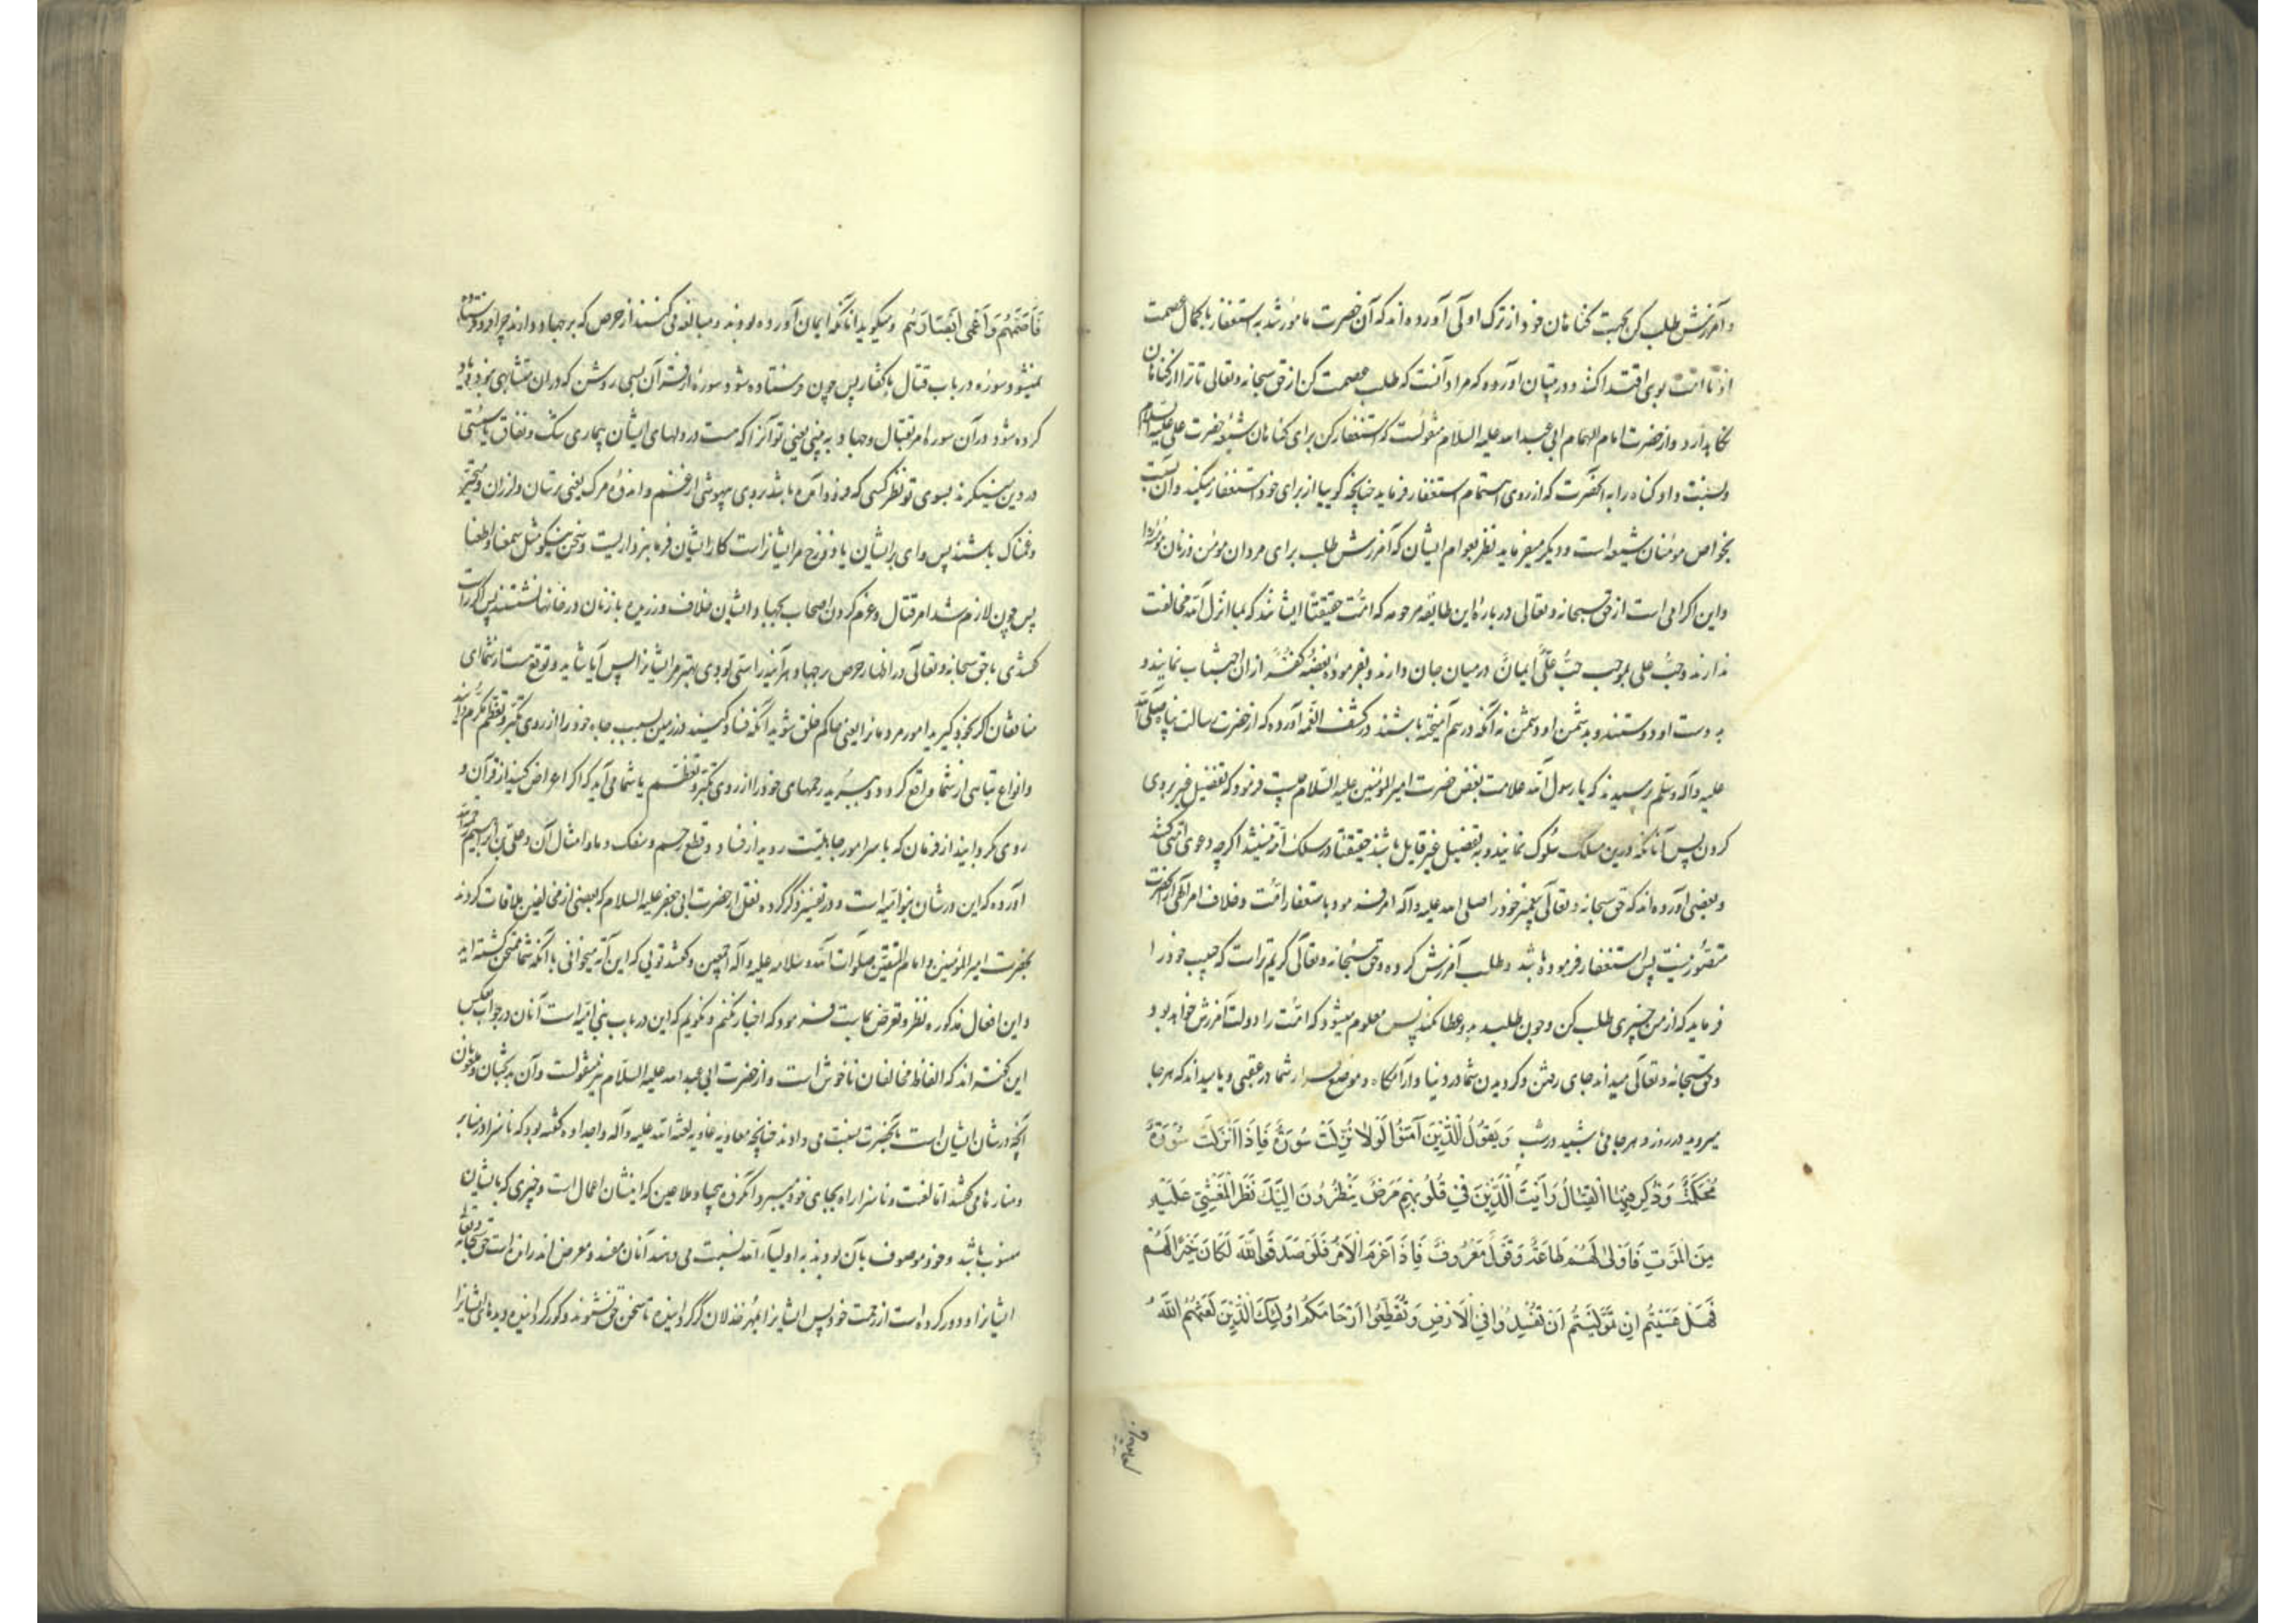 و آمرزش طلب کن بجهت گناهان خود از ترک اولی آورده‌اند که آن حضرت مامور شد به استغفار با کمال عصمت
تا امت بوی اقتدا کنند و در تبیان آورده که مراد آنست که طلب عصمت کن از حق سبحانه و تعالی تا ترا از گناهان
نگاه دارد و از حضرت امام الهمام ابی عبد الله علیه السلام منقولست که استغفار کن برای گناهان شیعه حضرت علی علیه السلام
و نسبت داد گناه را به آنحضرت که از روی اهتمام استغفار فرماید چنانچه گوییا از برای خود استغفار میکند و آن نسبت
بخواص مومنان شیعه است و دیگر میفرماید نظر بعوام ایشان که آمرزش طلب برای مردان مومن و زنان مومنه را
و این اکرامی است از حق سبحانه و تعالی در باره این طایفه مرحومه که امت حقیقتا ایشانند که بما انزل الله مخالفت
ندارند و حب علی بموجب حب علی ایمان در میان جان دارند و بفرموده بغضه کفر از ان اجتناب نمایند و
بدوست او دوستند و بدشمن او دشمن نه آنکه در هم آمیخته باشند در کشف الغمه آورده که از حضرت رسالت پناه صلی الله
علیه و آله و سلم پرسیدند که یا رسول الله علامت بغض حضرت امیر المومنین علیه السلام چیست فرمود که تفضیل غیر بر وی
کردن پس آنانکه درین مسلک سلوک نمایند و به تفضیل غیر قایل باشند حقیقتا در سلک امت نیستند اگرچه دعوی امتی کنند
و بعضی آورده‌اند که حق سبحانه و تعالی پیغمبر خود را صلی الله علیه و آله امر فرمود باستغفار امت و خلاف امر الهی از آنحضرت
متصور نیست پس استغفار فرموده باشد و طلب آمرزش کرده و حق سبحانه و تعالی کریم‌تر است که حبیب خود را
فرماید که از من چیزی طلب کن و چون طلبد بدو عطا نکند پس معلوم میشود که امت را دولت آمرزش خواهد بود و
حق سبحانه و تعالی میداند جای رفتن و گردیدن شما در دنیا و آرامگاه و موضع قرار شما در عقبی و یا میداند که هر جا
میروید در روز و هر جا می باشید در شب وَ یَقُولُ الَّذِینَ آمَنُوا لَوْلا نُزِّلَتْ سُورَةٌ فَإِذا أُنْزِلَتْ سُورَةٌ
مُحْکَمَةٌ وَ ذُکِرَ فِیهَا الْقِتالُ رَأَیْتَ الَّذِینَ فِی قُلُوبِهِمْ مَرَضٌ یَنْظُرُونَ إِلَیْکَ نَظَرَ الْمَغْشِیِّ عَلَیْهِ
مِنَ الْمَوْتِ فَأَوْلی لَهُمْ طاعَةٌ وَ قَوْلٌ مَعْرُوفٌ فَإِذا عَزَمَ الْأَمْرُ فَلَوْ صَدَقُوا اللَّهَ لَکانَ خَیْراً لَهُمْ
فَهَلْ عَسَیْتُمْ إِنْ تَوَلَّیْتُمْ أَنْ تُفْسِدُوا فِی الْأَرْضِ وَ تُقَطِّعُوا أَرْحامَکُمْ أُولئِکَ الَّذِینَ لَعَنَهُمُ اللَّهُ
فَأَصَمَّهُمْ وَ أَعْمی أَبْصارَهُمْ و میگویند آنانکه ایمان آورده بودند و مبالغه می کنند از حرص که بر جهاد دارند چرا فرو فرستاده
نمیشود سوره در باب قتال با کفار پس چون فرستاده شود سوره از قرآن بسی روشن که در ان متشابهی نبود و یاد
کرده شود در آن سوره امر بقتال و جهاد به بینی یعنی تو آنرا که هست در دلهای ایشان بیماری شک و نفاق یا سستی
در دین مینگرند بسوی تو نظر کسی که فرود آمده باشد بروی بیهوشی از غشم و اندوه مرگ یعنی ترسان و لرزان و متحیر
و غمناک باشند پس وای بر ایشان یا دوزخ مر ایشانراست کار ایشان فرمانبرداریست و سخن نیکو مثل سمعنا و اطعنا
پس چون لازم شد امر قتال و عزم کردن اصحاب بجهاد و ایشان خلاف ورزیده با زنان در خانها نشستند پس اگر راست
گفتندی با حق سبحانه و تعالی در اظهار حرص بر جهاد هر آینه راستی بودی بهتر مر ایشانرا پس آیا شاید و توقع هست از شما ای
منافقان اگر بخود گیرید امور مردمانرا یعنی حاکم خلق شوید آنکه فساد کنید در زمین بسبب جاه خود را از روی تکبر و تعظم
و انواع تباهی از شما واقع گردد و ببرید رحمهای خود را از روی تکبر و تعظم یا شما می آید که اگر اعراض کنید از قرآن و
روی گردانید از فرمان که باسرامور جاهلیت روید از فساد و قطع رحم و سفک دماء و امثال آن و علی بن ابراهیم رحمه الله
آورده که این در شان بنو امیه است و در تفسیر ذکر کرده نقل از حضرت ابی جعفر علیه السلام که بعضی از مخالفین ملاقات کردند
بحضرت امیر المومنین و امام المتقین صلوات الله و سلامه علیه و آله اجمعین و گفتند تویی که این آیه میخوانی با آنکه شما ممتحن گشته اید
و این افعال مذکوره نظر و تعرض بماست فرمود که اخبار نکنم و نگویم که این در باب بنی امیه است آنان در جواب بعکس
این گفته‌اند که الفاظ مخالفان ناخوش است و از حضرت ابی عبد الله علیه السلام نیز منقولست و آن بدکیشان و ملعونان
آنچه در شان ایشان است بآنحضرت نسبت می دادند چنانچه معاویه غاویه لعنه الله علیه و آله و اجداده گفته بود که ناسزا در منابر
و منارها می گفتند اما لعنت و ناسزا راه بجای خود میبرد آنگروه بیحیا و ملاعین که اینشان اعمال است و چیزی که بایشان
منسوب باشد و خود موصوف بآن بودند به اولیاء الله نسبت می دهند آنان مفسد و معرض اند راندن است حق سبحانه و تعالی
ایشانرا و دور کرده است از رحمت خود پس ایشانرا بمهر خذلان کر گردانیده تا سخن حق نشنوند و کور گردانیده دیدهای ایشانرا